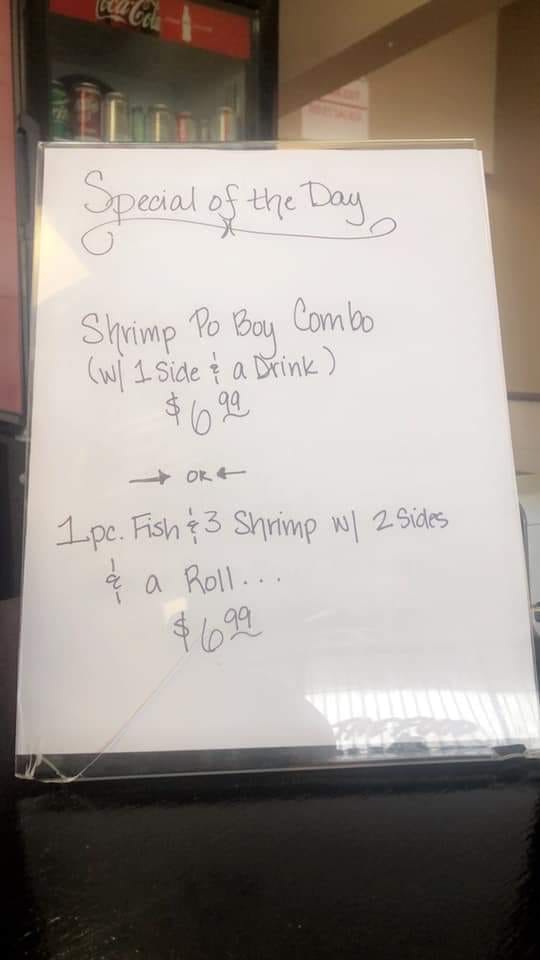 Coca-Cola
Special of the Day
Shrimp Po Boy Combo
(w/ 1 Side & a Drink)
$6.99
→ OR ←
1pc. Fish & 3 Shrimp w/ 2 Sides
& a Roll...
$6.99